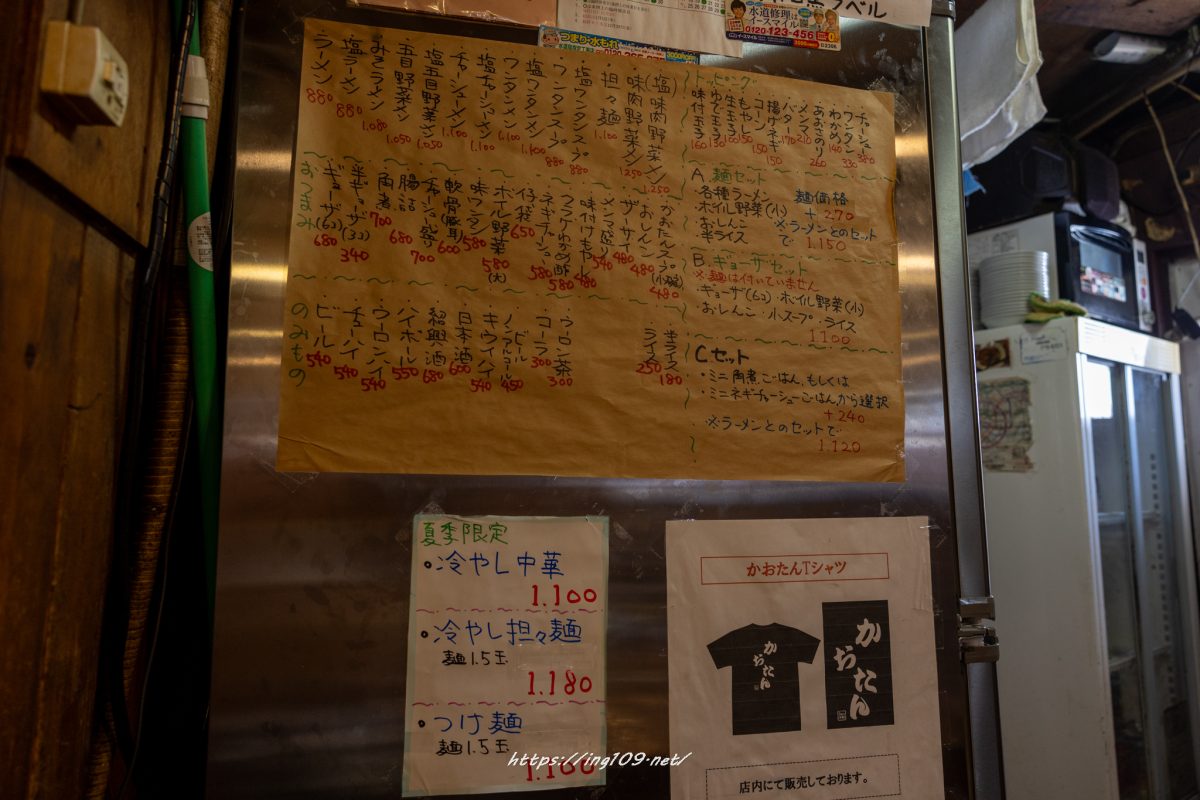 水道修理は
イースマイル
0120-123-456
つまり・水もれ
ラーメン 880
塩ラーメン 880
みそラーメン 1.080
五目野菜メン 1.050
塩五目野菜メン 1.050
チャーシューメン 1.100
塩チャーシューメン 1.100
ワンタンメン 1.100
塩ワンタンメン 1.100
ワンタンスープ 880
塩ワンタンスープ 880
担々麺 1.100
味肉野菜メン 1.250
(塩)味肉野菜メン 1.250
おつまみ
ギョーザ(6コ) 680
半ギョーザ(3コ) 340
角煮 700
腸詰 680
チャーシュー盛り 700
軟骨(豚耳) 600
味ワンタン 580
ボイル野菜(大) 580
仔袋 650
ネギチャーシュー 580
わかめ酢 580
味付けもやし小 480
メンマ(盛り) 540
ザーサイ 480
おしんこ 480
かおたんスープ(小碗) 480
のみもの
ビール 540
チューハイ 540
ウーロンハイ 540
ハイボール 550
紹興酒 680
日本酒 600
キウイハイ 540
ノンアルコールビール 450
コーラ 300
ウーロン茶 300
ライス 250
半ライス 180
トッピング
味付玉子 160
ゆで玉子 130
生玉子 100
もやし 150
コーン 150
揚ネギ 150
バター 170
メンマ 210
あおさのり 260
わかめ 140
ワンタン 330
チャーシュー 380
A.麺セット
・各種ラーメン 麺価格
・ボイル野菜(小) +270
・おしんこ ※ラーメンとのセット
・半ライス で 1.150
B.ギョーザセット
※麺は付いていません
・ギョーザ(6コ)・ボイル野菜(小)
・おしんこ・小スープ・ライス
1.100
Cセット
・ミニ角煮ごはん、もしくは
・ミニネギチャーシューごはん、から選択
+240
※ラーメンとのセットで
1.120
夏季限定
・冷やし中華
1.100
・冷やし担々麺
麺1.5玉
1.180
・つけ麺
麺1.5玉
1.100
かおたんTシャツ
かおたん
かおたん
店内にて販売しております。
https://ing109.net/